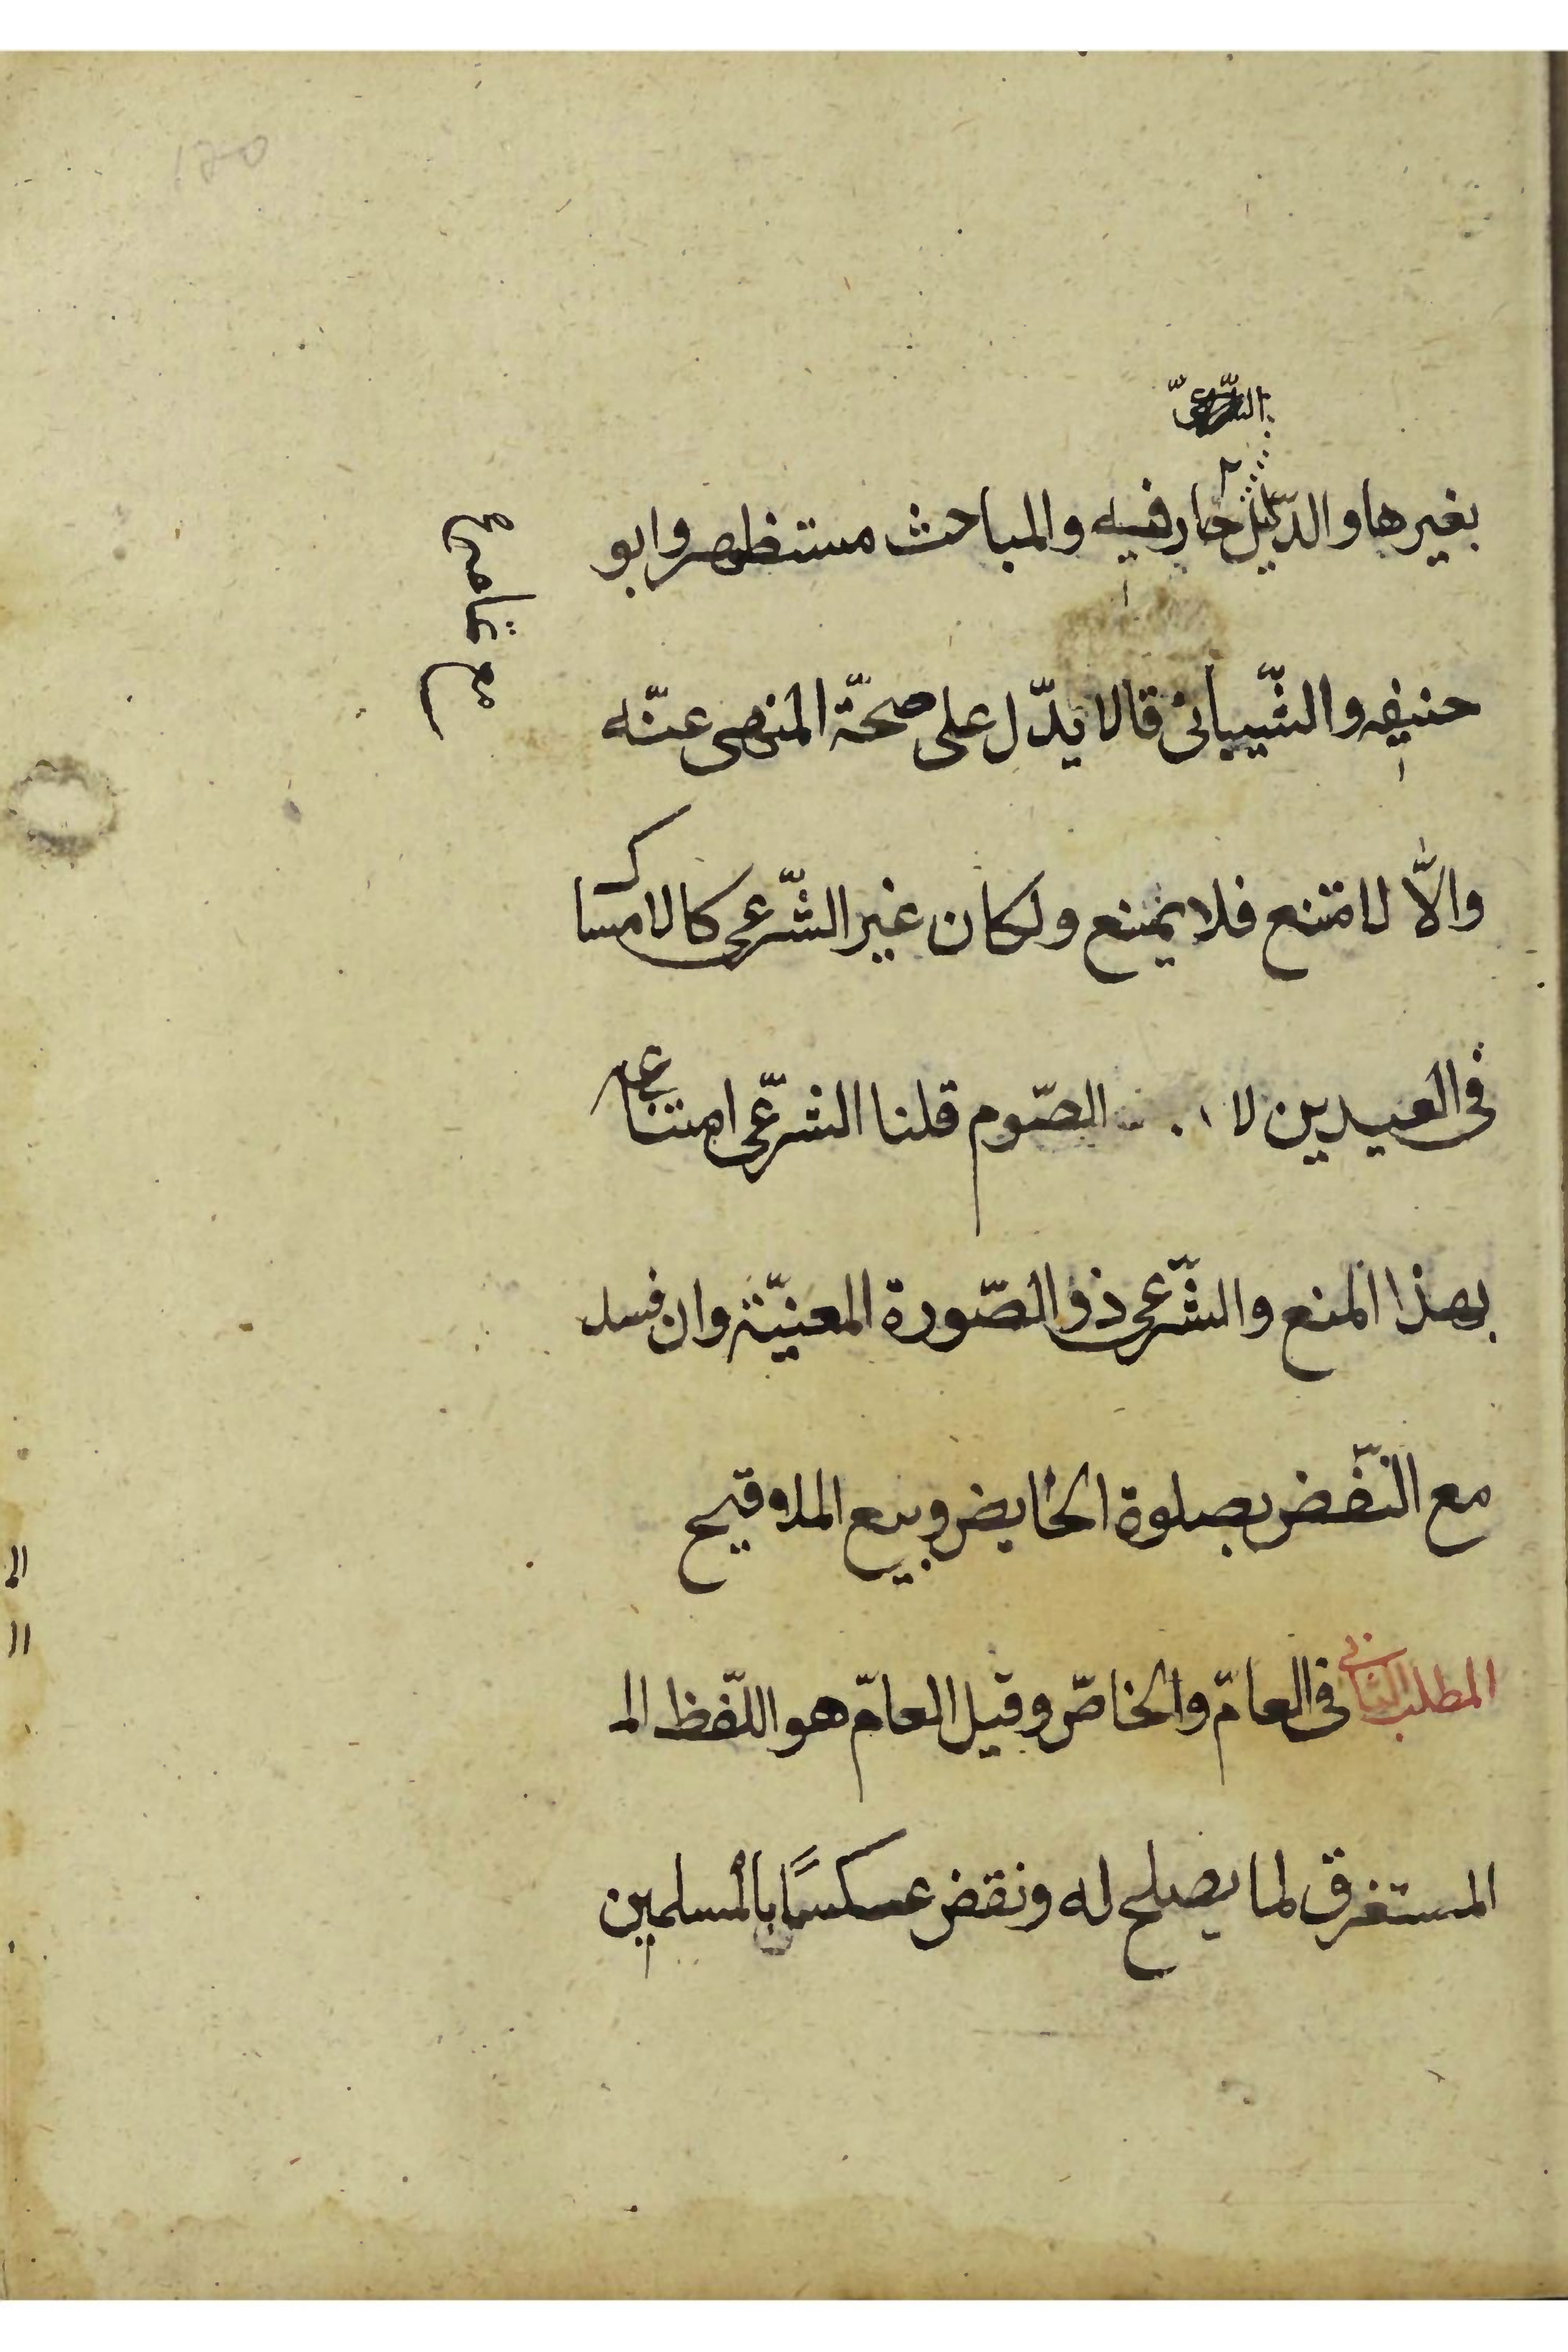 بغيرها والدّليل جار فيه والمباحث مستظهر وابو
حنيفه والشّيبانى قالا يدّل على صحّة المنهى عنّه
والاّ لامتنع فلا يمنع ولكان غير الشّرعى كالامسا
فى العيدين لا الصّوم قلنا الشرعّى امتناعه
بهذا المنع والشّرعى ذو الصّورة المعنيّة وان فسد
مع النّقض بصلوة الحايض وبيع الملاقيح
المطلب الثانى فى العامّ والخاصّ وقيل العامّ هو اللّفظ الم
المستغرق لما يصلح له ونقض عسكسًا بالمسلمين